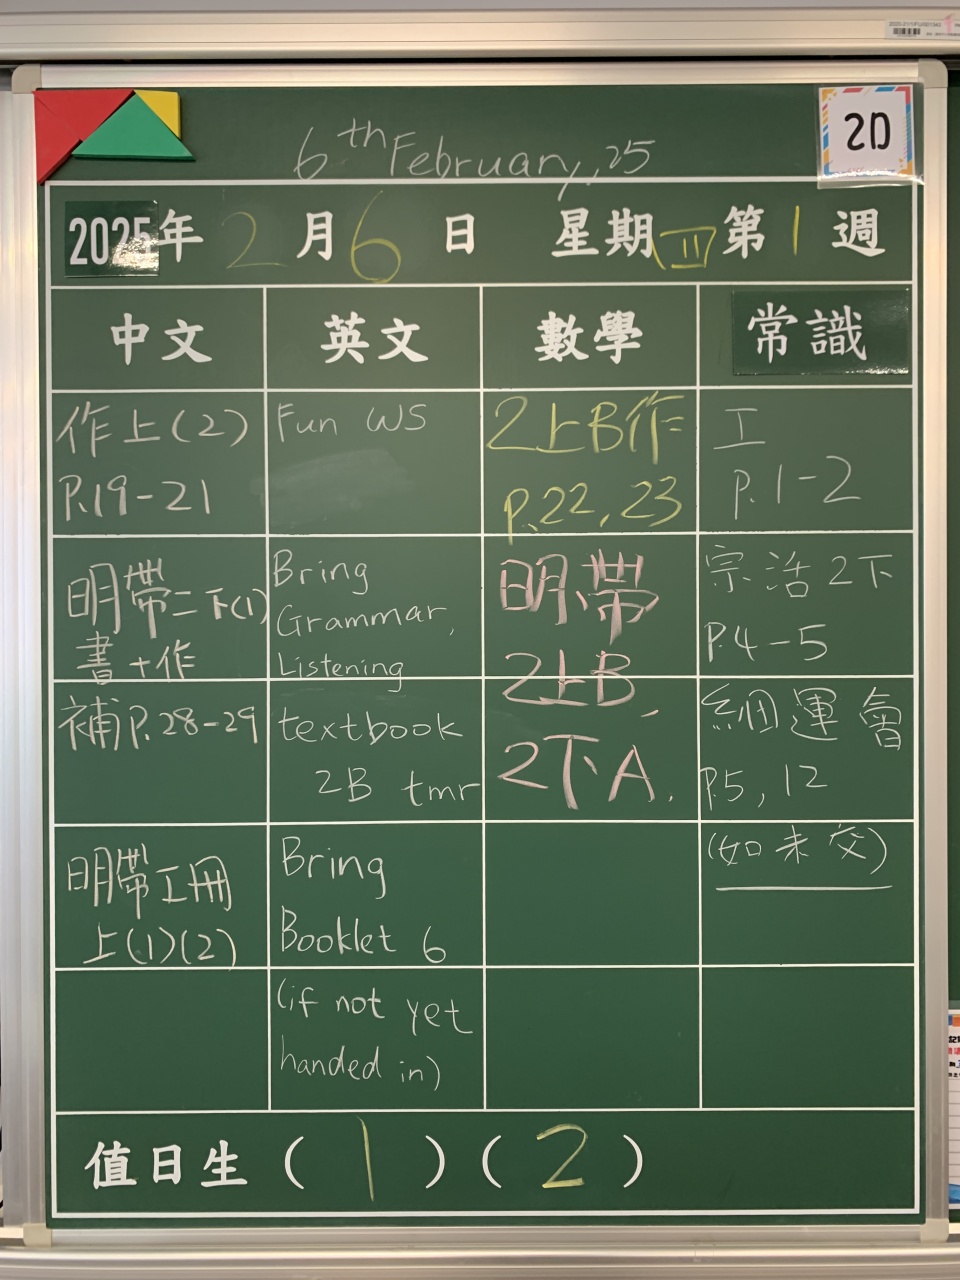 2D
6th February, 25
2025年 2月6日 星期四 第1週
中文 英文 數學 常識
作上(2)
P.19-21
明帶二下(1)
書+作
補P.28-29
明帶工冊
上(1)(2)
Fun WS
Bring
Grammar,
Listening
textbook
2B tmr
Bring
Booklet 6
(if not yet
handed in)
2上B作
p.22,23
明帶
2上B,
2下A.
工
P.1-2
宗活2下
P.4-5
P.5,12
(如未交)
值日生(1)(2)